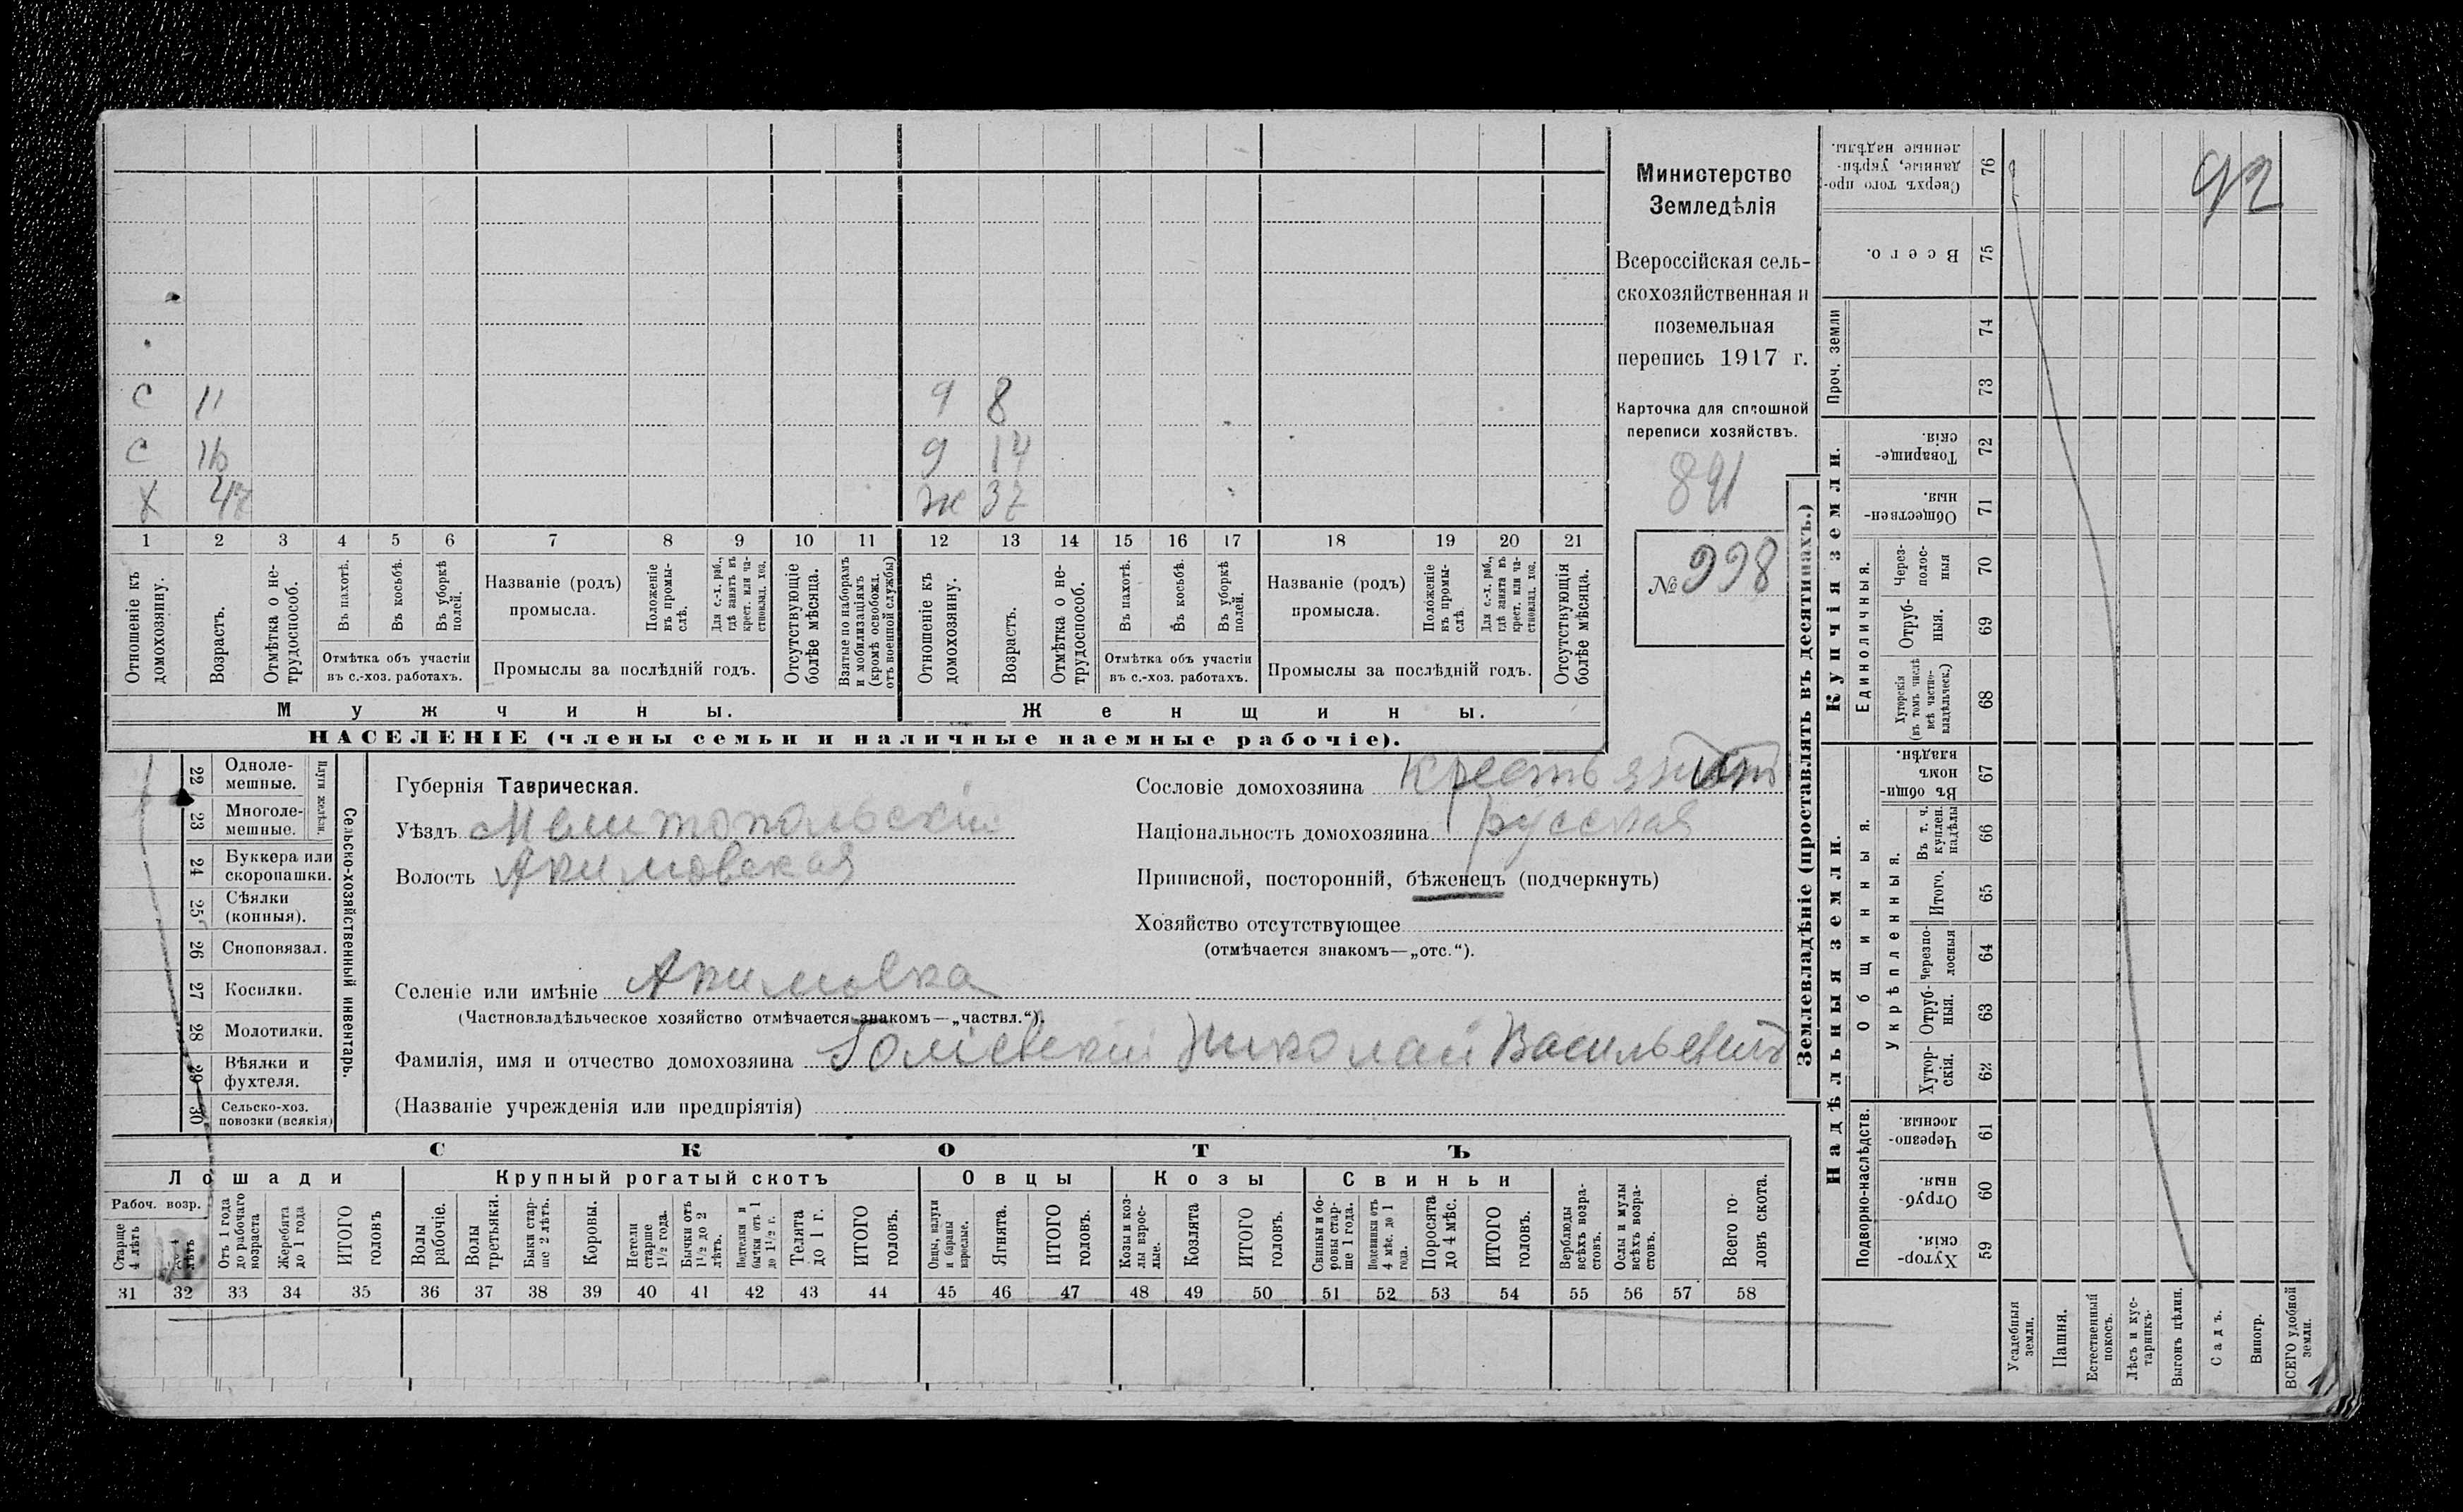 92
С 11 9 8
С 16 9 14
Х 47 Ж 37
1 2 3 4 5 6 7 8 9 10 11 12 13 14 15 16 17 18 19 20 21
Отношеніе къ домохозяину.
Возрастъ.
Отмѣтка о не-трудоспособ.
Въ пахотѣ.
Въ косьбѣ.
Въ уборкѣ полей.
Отмѣтка объ участіи
въ с.-хоз. работахъ.
Названіе (родъ)
промысла.
Положеніе въ промы-слѣ.
Для с.-х. раб., гдѣ занятъ въ крест. или ча-стновлад. хоз.
Промыслы за послѣдній годъ.
Отсутствующіе болѣе мѣсяца.
Взятые по наборамъ и мобилизаціямъ (кромѣ освобожд. отъ военной службы)
Отношеніе къ домохозяину.
Возрастъ.
Отмѣтка о не-трудоспособ.
Въ пахотѣ.
Въ косьбѣ.
Въ уборкѣ полей.
Отмѣтка объ участіи
въ с.-хоз. работахъ.
Названіе (родъ)
промысла.
Положеніе въ промы-слѣ.
Для с.-х. раб., гдѣ занята въ крест. или ча-стновлад. хоз.
Промыслы за послѣдній годъ.
Отсутствующія болѣе мѣсяца.
Мужчины.
Женщины.
НАСЕЛЕНІЕ (члены семьи и наличные наемные рабочіе).
Министерство
Земледѣлія
Всероссійская сель-
скохозяйственная и
поземельная
перепись 1917 г.
Карточка для сплошной
переписи хозяйствъ.
891
№ 998
22 Одноле-мешные.
23 Многоле-мешные.
Плуги желѣзн.
24 Буккера или скоропашки.
25 Сѣялки (конныя).
26 Сноповязал.
27 Косилки.
28 Молотилки.
29 Вѣялки и фухтеля.
30 Сельско-хоз. повозки (всякія)
Сельско-хозяйственный инвентарь.
Губернія Таврическая.
Уѣздъ Мелитопольскій
Волость Акимовская
Селеніе или имѣніе Акимовка
(Частновладѣльческое хозяйство отмѣчается знакомъ—„частвл.“).
Фамилія, имя и отчество домохозяина Николай Васильевичъ
(Названіе учрежденія или предпріятія)
Сословіе домохозяина
Національность домохозяина русская
Приписной, посторонній, бѣженецъ (подчеркнуть)
Хозяйство отсутствующее
(отмѣчается знакомъ—„отс.“).
СКОТЪ
Лошади
Крупный рогатый скотъ
Овцы
Козы
Свиньи
Рабоч. возр.
Старше 4 лѣтъ
Отъ 1 года до рабочаго возраста
Жеребята до 1 года
ИТОГО головъ
Волы рабочіе.
Волы третьяки.
Быки стар-ше 2 лѣтъ.
Коровы.
Нетели старше 1½ года.
Бычки отъ 1½ до 2 лѣтъ.
Подтелки и бычки отъ 1 до 1½ г.
Телята до 1 г.
ИТОГО головъ.
Овцы, валухи и бараны взрослые.
Ягнята.
ИТОГО головъ.
Козы и коз-лы взрос-лые.
Козлята
ИТОГО головъ.
Свиньи и бо-ровы стар-ше 1 года.
Подсвинки отъ 4 мѣс. до 1 года.
Поросята до 4 мѣс.
ИТОГО головъ.
Верблюды всѣхъ возра-стовъ.
Ослы и мулы всѣхъ возра-стовъ.
Всего го-ловъ скота.
31 32 33 34 35 36 37 38 39 40 41 42 43 44 45 46 47 48 49 50 51 52 53 54 55 56 57 58
Землевладѣніе (проставлять въ десятинахъ.)
Купчія земли.
Надѣльныя земли.
Сверхъ того про-данные, укрѣп-ленные надѣлы. 76
Всего. 75
Проч. земли
74
73
Товарище-скія. 72
Обществен-ныя. 71
Единоличныя.
Через-полос-ныя 70
Отруб-ныя. 69
Хуторскія (въ томъ числѣ всѣ частно-владѣльческ.) 68
Общинныя.
Въ общин-номъ владѣн. 67
Укрѣпленныя.
Въ т. ч. куплен. надѣлы 66
Итого. 65
Черезпо-лосныя 64
Отруб-ныя. 63
Хутор-скія. 62
Подворно-наслѣдств.
Черезпо-лосныя. 61
Отруб-ныя. 60
Хутор-скія. 59
Усадебныя земли.
Пашня.
Естественный покосъ.
Лѣсъ и кус-тарникъ.
Выгонъ цѣлин.
Садъ.
Виногр.
ВСЕГО удобной земли.